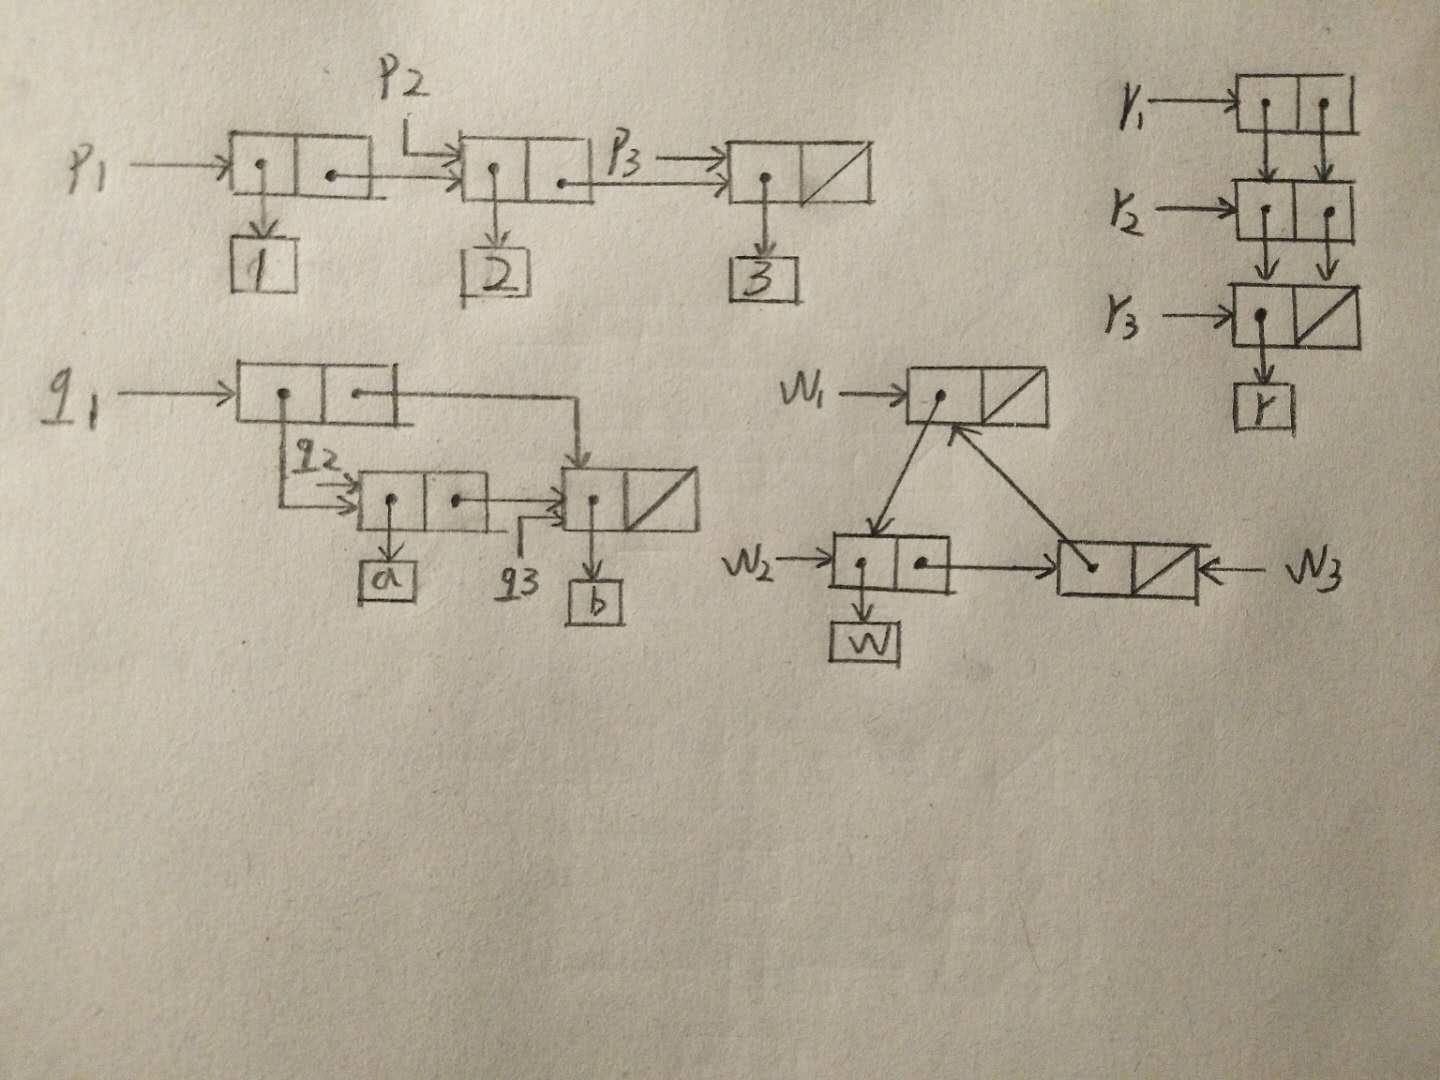 P2
P1
P3
1
2
3
r1
r2
r3
r
q1
q2
q3
a
b
W1
W2
W3
W